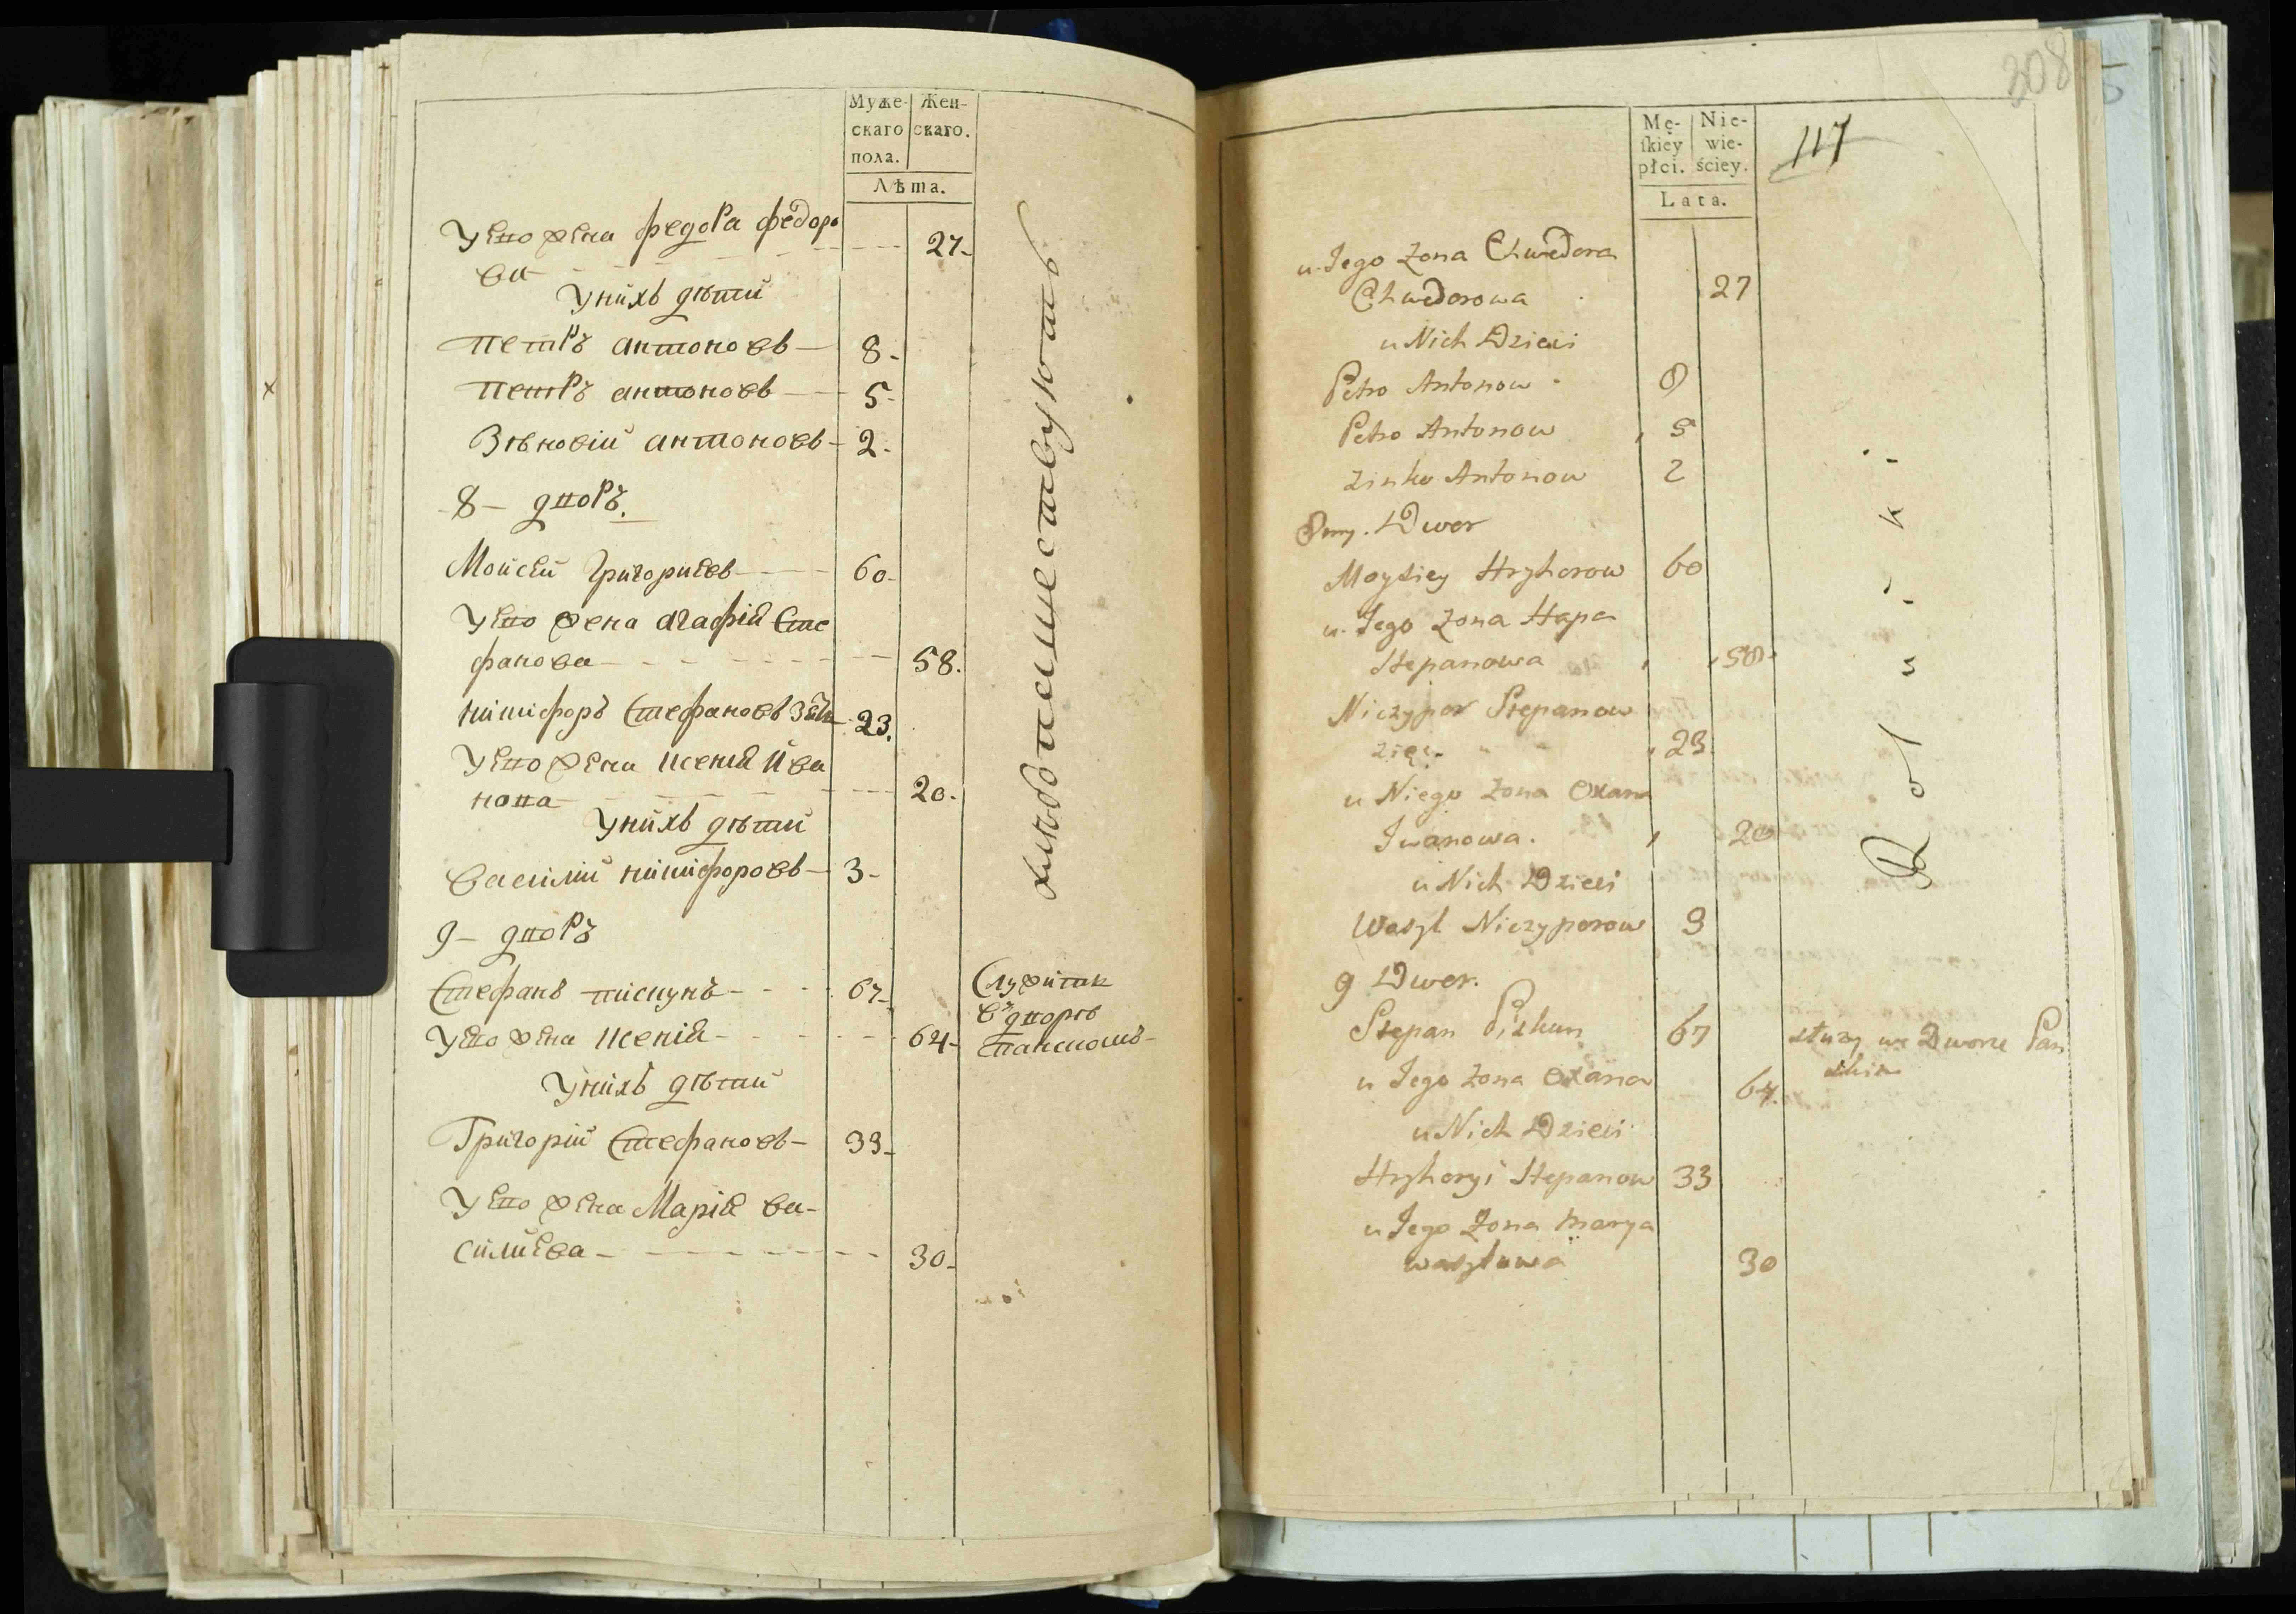 Муже-
скаго
пола.
Жен-
скаго.
Лѣта.
Уево жена федора федоро
ва 27
Унихъ дѣти
петръ антоновъ 8
петръ антоновъ 5
Зѣновiй антоновъ 2
8 дворъ.
Мойсей Григориевъ 60
Уево жена агафiя Сте
фанова 58.
никифоръ Стефановъ зять 23.
Уево жена ксенiя ива
нова 20.
Унихъ дѣти
василiй никифоровъ 3
9 дворъ
Стефанъ пискунъ 67
Уево жена ксенiя 64
Унихъ дѣти
Григорiй Стефановъ 33
Уево жена Марiя ва-
силиева 30
хлѣбопашествуютъ
Служитъ
въ дворѣ
панскомъ
308
117
Mę-
skiey
płci.
Nie-
wie-
ściey.
Lata.
u Jego żona Chwedora
Chwedorowa 27
u Nich Dzieci
Petro Antonow 8
Petro Antonow 5
Zinko Antonow 2
8my. Dwor
Moysiey Hryhorow 60
u Jego żona Hapa
Stepanowa 58
Niczypor Stepanow
zięć 23
u Niego żona Oxana
Iwanowa. 20
u Nich Dzieci
Wasyl Niczyporow 3
9 Dwor.
Stepan Piskun 67
u Jego żona Oxana 64.
u Nich Dzieci
Hryhoryi Stepanow 33
u Jego żona Marya
wasylowa 30
Rolniki
słuzy we Dworze Pań
skim